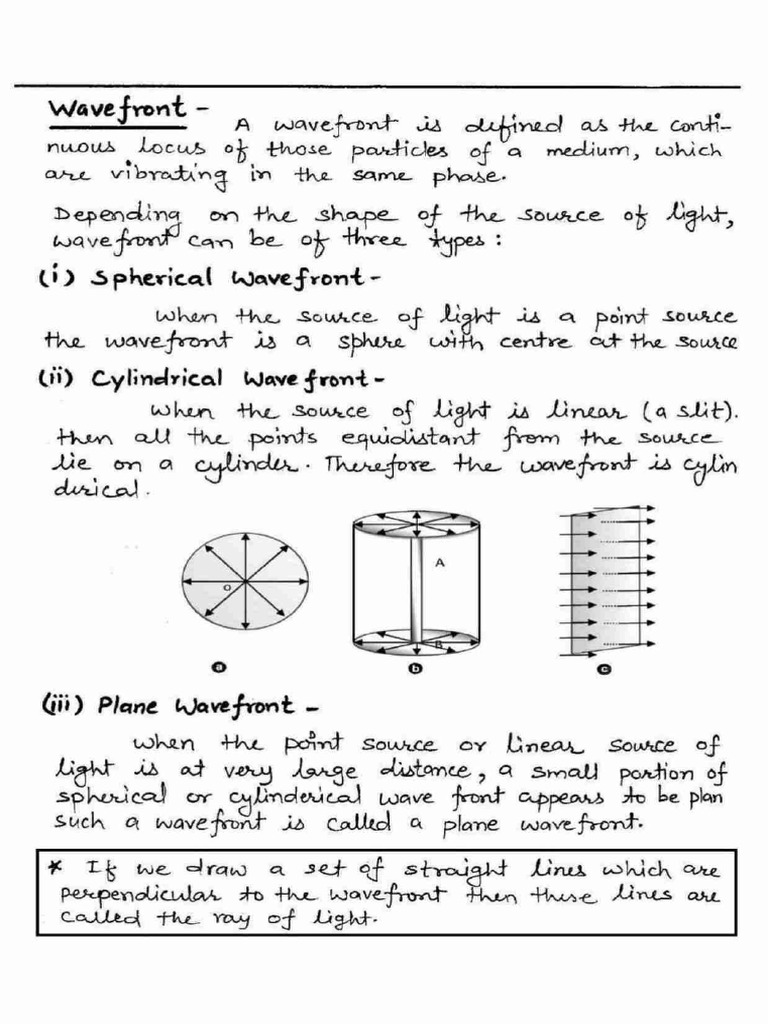 Wavefront -
A wavefront is defined as the conti-
nuous locus of those particles of a medium, which
are vibrating in the same phase.
Depending on the shape of the source of light,
wavefront can be of three types :
(i) Spherical Wavefront -
When the source of light is a point source
the wavefront is a sphere with centre at the source
(ii) Cylindrical Wavefront -
When the source of light is linear (a slit).
then all the points equidistant from the source
lie on a cylinder. Therefore the wavefront is cylin
derical.
O
A
B
a b c
(iii) Plane Wavefront -
When the point source or linear source of
light is at very large distance, a small portion of
spherical or cylinderical wave front appears to be plan
such a wavefront is called a plane wavefront.
* If we draw a set of straight lines which are
perpendicular to the wavefront then these lines are
called the ray of light.